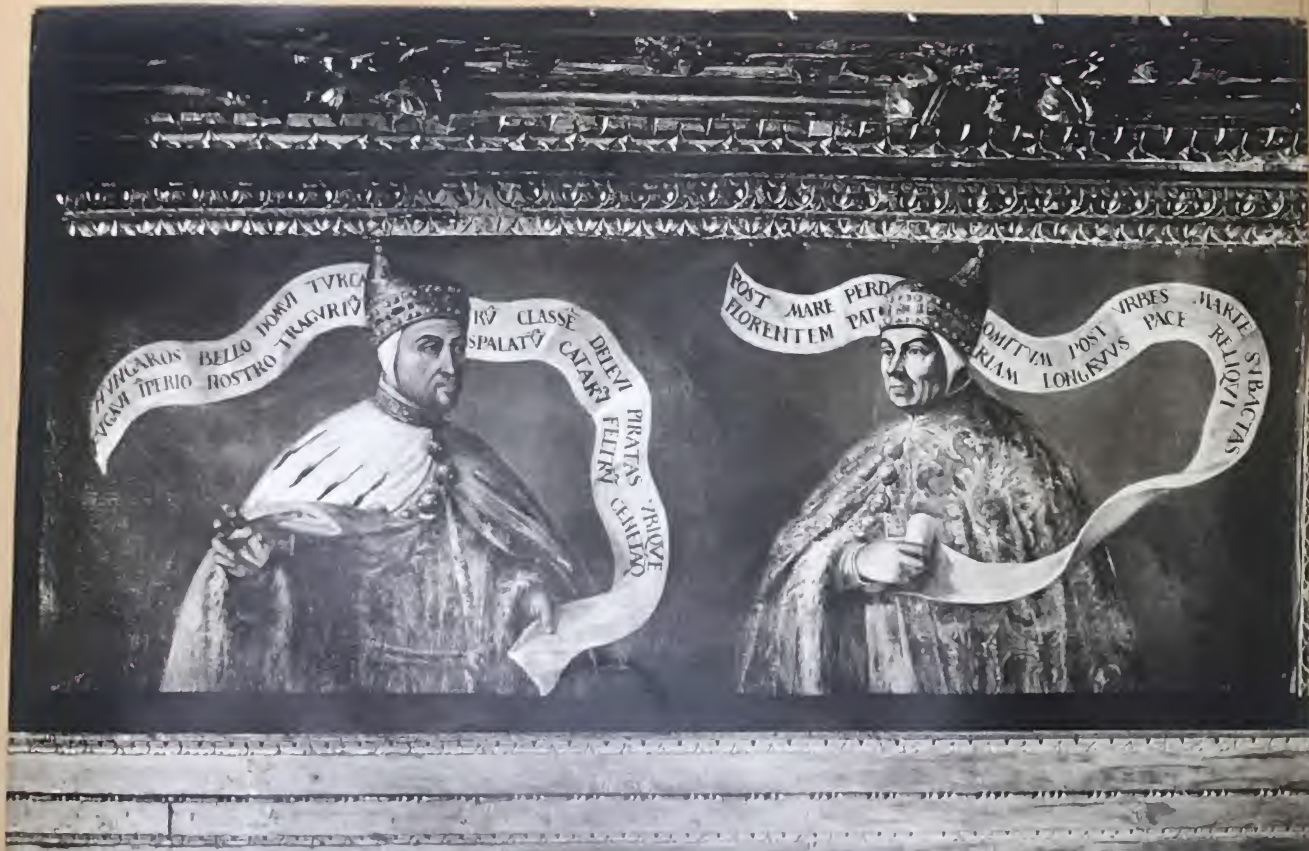 HVNGAROS BELLO DOMVI TVRCA RV̂ CLASSĒ DELEVI PIRATAS VRIQVE
VGAVI ĪPERIO NOSTRO TRAGVRIV̂ SPALATV̂ CATARV̂ FELTRV̂ CENETĀQ
POST MARE PERD OMITVM POST VRBES MARTE SVBACTAS
FLORENTEM PAT RIAM LONGÆVVS PACE RELIQVI